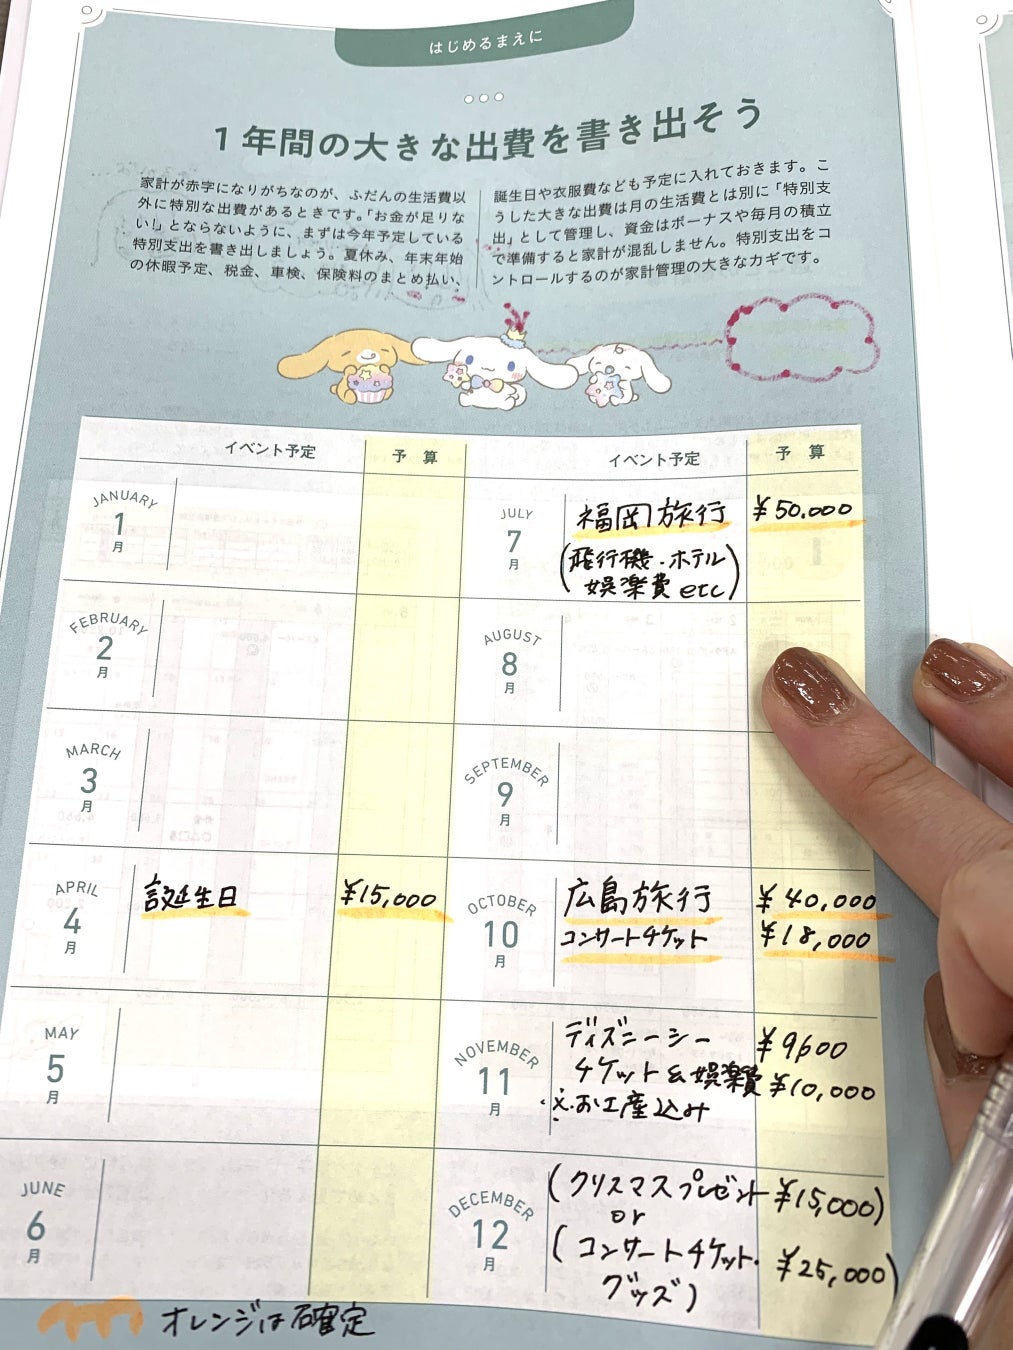 はじめるまえに
1年間の大きな出費を書き出そう
家計が赤字になりがちなのが、ふだんの生活費以
外に特別な出費があるときです。「お金が足りな
い!」とならないように、まずは今年予定している
特別支出を書き出しましょう。夏休み、年末年始
の休暇予定、税金、車検、保険料のまとめ払い、
誕生日や衣服費なども予定に入れておきます。こ
うした大きな出費は月の生活費とは別に「特別支
出」として管理し、資金はボーナスや毎月の積立
で準備すると家計が混乱しません。特別支出をコ
ントロールするのが家計管理の大きなカギです。
イベント予定 予算
JANUARY
1
月
FEBRUARY
2
月
MARCH
3
月
APRIL
4
月
誕生日 ¥15,000
MAY
5
月
JUNE
6
月
イベント予定 予算
JULY
7
月
福岡旅行 ¥50.000
(飛行機・ホテル
娯楽費 etc)
AUGUST
8
月
SEPTEMBER
9
月
OCTOBER
10
月
広島旅行 ¥40,000
コンサートチケット ¥18,000
NOVEMBER
11
月
ディズニーシー ¥9600
チケット&娯楽費 ¥10,000
※お土産込み
DECEMBER
12
月
(クリスマスプレゼント ¥15,000)
or
(コンサートチケット・ ¥25,000)
グッズ)
オレンジは確定